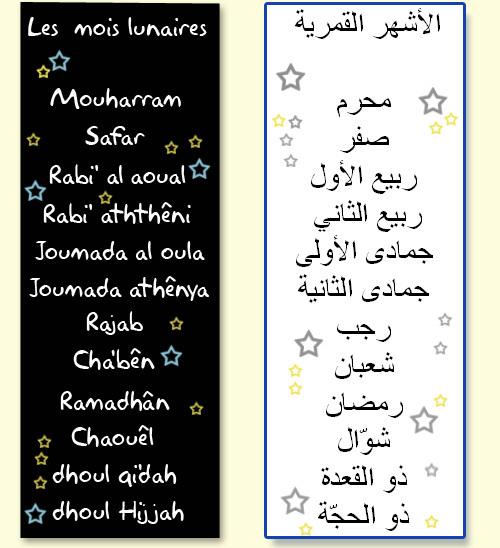 Les mois lunaires
Mouharram
Safar
Rabi" al aoual
Rabi" aththêni
Joumada al oula
Joumada athênya
Rajab
Cha'bên
Ramadhân
Chaouêl
dhoul qi'dah
dhoul Hijjah
الأشهر القمرية
محرم
صفر
ربيع الأول
ربيع الثاني
جمادى الأولى
جمادى الثانية
رجب
شعبان
رمضان
شوّال
ذو القعدة
ذو الحجّة